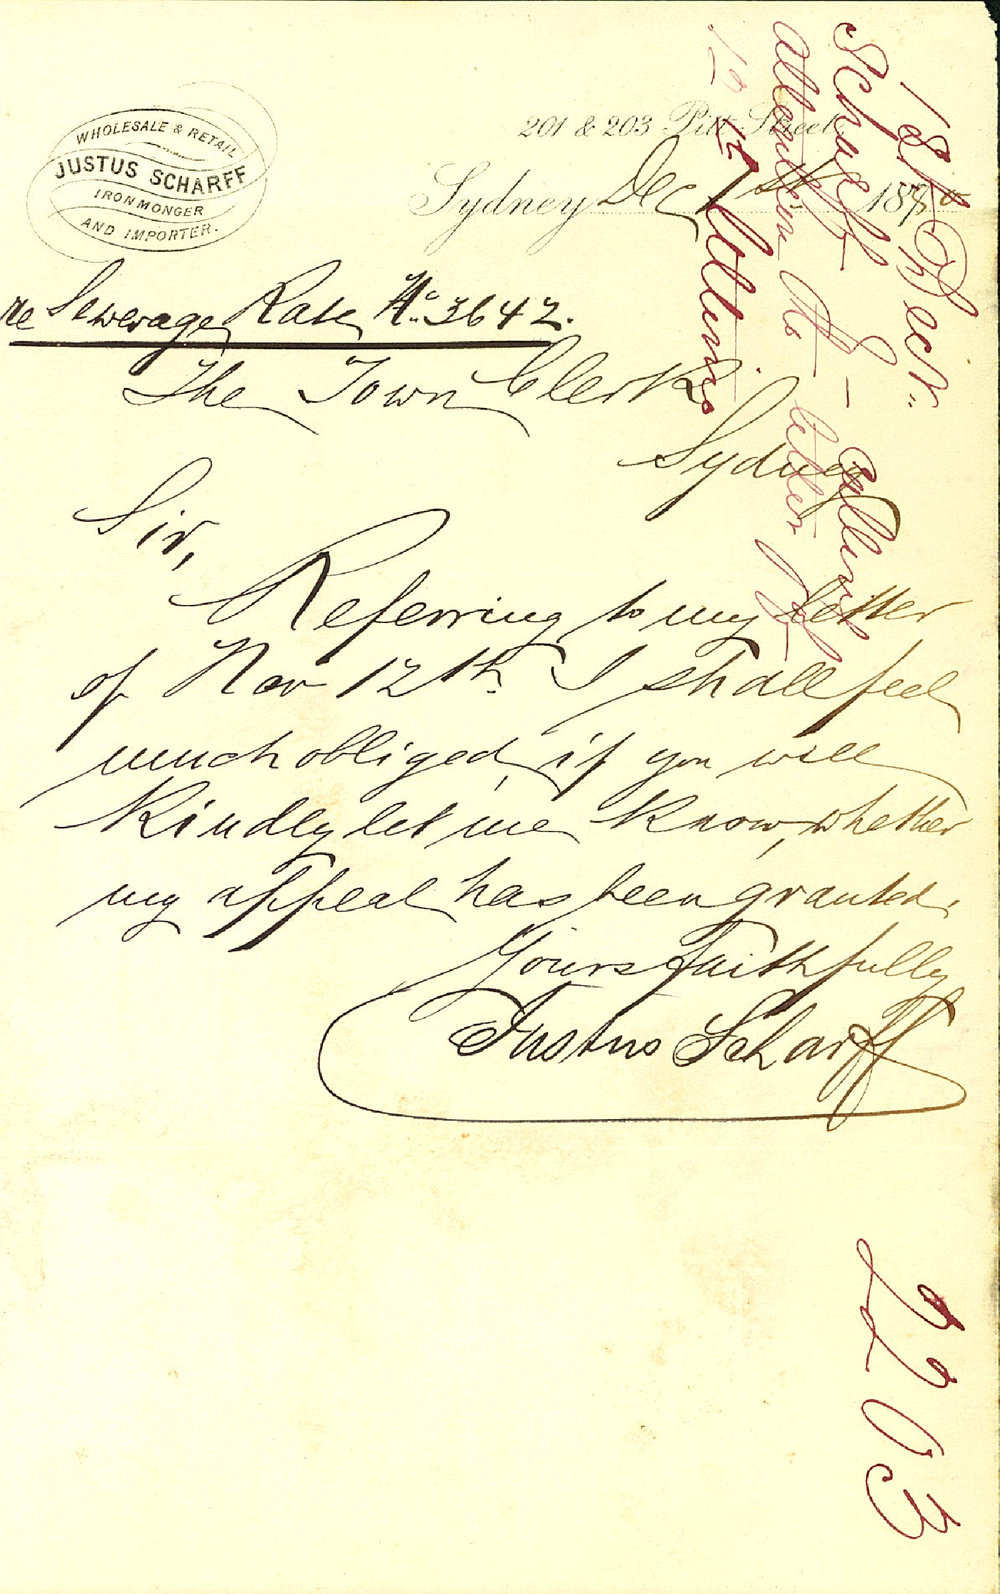 WHOLESALE & RETAIL
JUSTUS SCHARFF
IRONMONGER
AND IMPORTER.
201 & 203 Pitt Street,
Sydney Dec 1st 18
re Sewerage Rate No. 3642.
The Town Clerk
Sydney
Sir,
Referring to my letter
of Nov 12th. I shall feel
much obliged, if you will
kindly let me know, whether
my appeal has been granted.
Yours faithfully
Justus Scharff
1st Decr.
Scharff J – calling
attention to letter of
12th ultimo
2203